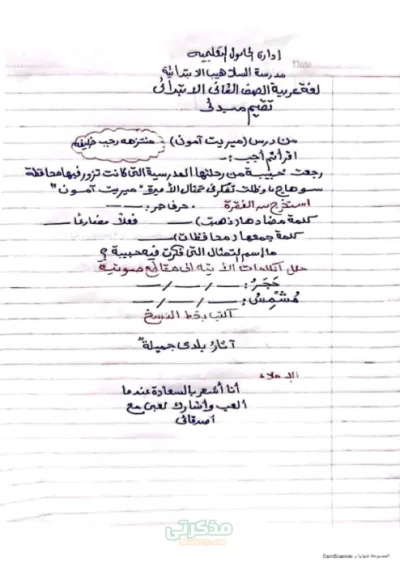 إدارة الحامول التعليمية
مدرسة السلاهيب الابتدائية
لغة عربية الصف الثاني الابتدائى
تقييم مبدئى
من درس (ميريت آمون) منتزهه رحب
اقرأ ثم أجب:-
رجعت حبيبة من رحلتها المدرسية التى كانت تزور فيها محافظة
سوهاج، وظلت تفكر فى تمثال الأميرة "ميريت آمون"
استخرج من الفقرة :- حرف جر:
كلمة مضادها (ذهبت) فعلاً مضارعًا
كلمة جمعها (محافظات)
ما اسم التمثال التى فكرت فيه حبيبة ؟
حلل الكلمات الآتية إلى مقاطع صوتية
حَجَرُ : / /
مُشْمِسُ : / /
اكتب بخط النسخ
آثارُ بلدى جميلةٌ
الإملاء
أنا أشعر بالسعادة عندما
ألعب وأشارك لعبى مع
أصدقائى
مذكرتى
الممسوحة ضوئيا بـ CamScanner